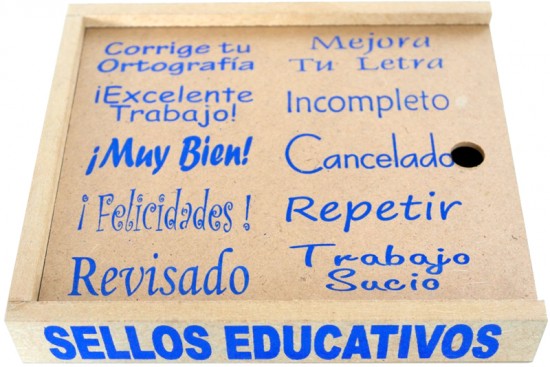 Corrige tu
Ortografía
¡Excelente
Trabajo!
¡Muy Bien!
¡Felicidades!
Revisado
Mejora
Tu Letra
Incompleto
Cancelado
Repetir
Trabajo
Sucio
SELLOS EDUCATIVOS